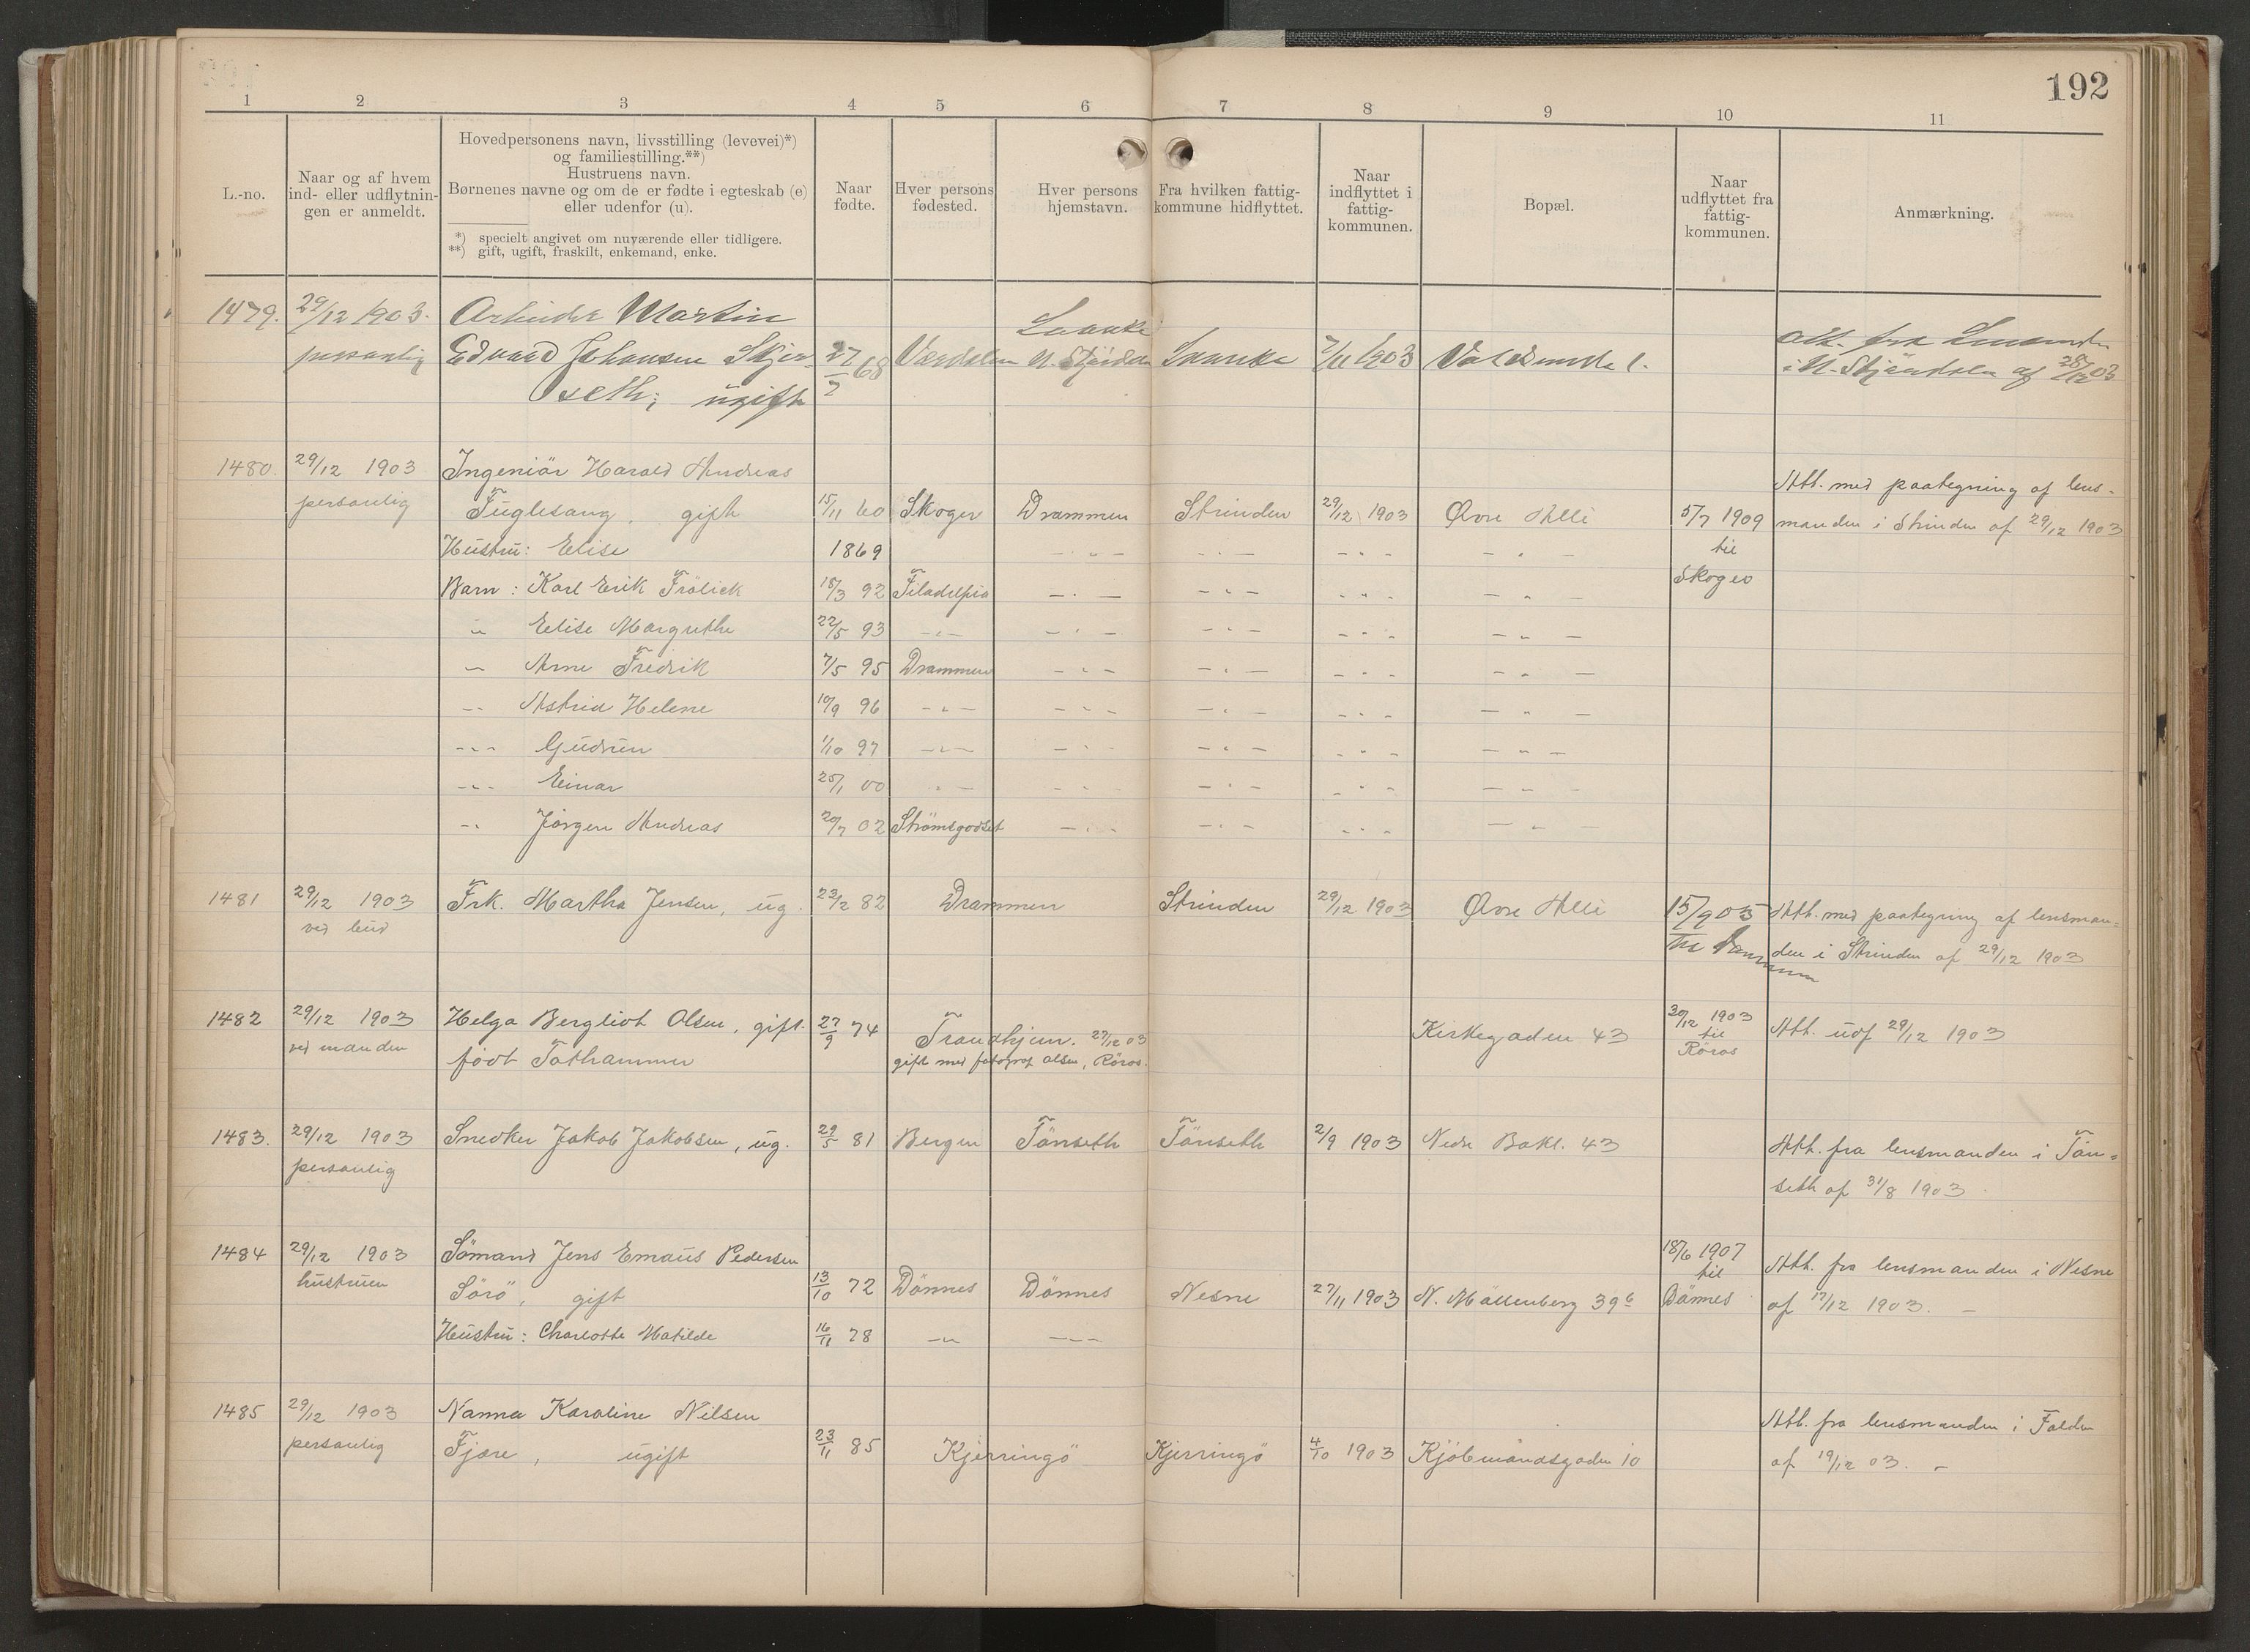 192
1 2 3 4 5 6 7 8 9 10 11
L.-no.
Naar og af hvem
ind- eller udflytnin-
gen er anmeldt.
Hovedpersonens navn, livsstilling (levevei)*)
og familiestilling.**)
Hustruens navn.
Børnenes navne og om de er fødte i egteskab (e)
eller udenfor (u).
*) specielt angivet om nuværende eller tidligere.
**) gift, ugift, fraskilt, enkemand, enke.
Naar
fødte.
Hver persons
fødested.
Hver persons
hjemstavn.
Fra hvilken fattig-
kommune hidflyttet.
Naar
indflyttet i
fattig-
kommunen.
Bopæl.
Naar
udflyttet fra
fattig-
kommunen.
Anmærkning.
1479. 29/12 1903. Arbeider Martin Laanke
personlig Edvard Johansen Skjer- 27/7 68 Værdalen N. Stjørdalen Laanke 7/11 1903 1. Att. fra
seth; ugift i N. Stjørdalen af 28/12 03
1480. 29/12 1903 Ingeniör Harald Andreas Att. med paategning af lens-
personlig Fuglesang, gift 15/11 60 Skoger Drammen Strinden 29/12 1903 Øvre Alle 5/7 1909 manden i Strinden af 29/12 1903
Hustru: Elise 1869 - " - - " - - " - - " - til
Skoger
Barn: Karl Erik Frölick 18/3 92 Filadelfia - " - - " - - " - - " -
" Elise Margrethe 22/5 93 - " - - " - - " - - " - - " -
" Arne Fredrik 7/5 95 Drammen - " - - " - - " - - " -
" Astrid Helene 10/9 96 - " - - " - - " - - " - - " -
- " - Gudrun 1/10 97 - " - - " - - " - - " - - " -
- " - Einar 25/1 00 - " - - " - - " - - " - - " -
- " Jörgen Andreas 20/7 02 Strömsgodset - " - - " - - " - - " -
1481 29/12 1903 Frk. Martha Jensen, ug. 23/2 82 Drammen Strinden 29/12 1903 Øvre Alle 15/9 05 Att. med paategning af lensman-
ved bud til Drammen den i Strinden af 29/12 1903
1482 29/12 1903 Helga Bergliot Olsen, gift. 27/9 74 Trondhjem. 27/12 03 Kirkegaden 43 30/12 1903 Att. udf 29/12 1903
ved manden födt Tothammer gift med fotograf Olsen, Röros. til
Röros
1483. 29/12 1903 Snedker Jakob Jakobsen, ug. 29/5 81 Bergen Tönseth Tönseth 2/9 1903 Nedre Bakl. 43 Att. fra lensmanden i Tön-
personlig seth af 31/8 1903
1484 29/12 1903 Sömand Jens Emaus Pedersen 18/6 1907 Att. fra lensmanden i Nesne
hustruen Sörö, gift 13/10 72 Dönnes Dönnes Nesne 27/11 1903 N. Möllenberg 39 til Dönnes af 17/12 1903. -
Hustru: Charlotte Matilde 16/11 78 - " - - " -
1485 29/12 1903 Nanna Karoline Nilsen Att. fra lensmanden i Folden
personlig Fjære, ugift 23/11 85 Kjerringö Kjerringö 4/10 1903 Kjöbmandsgaden 10 af 19/12 03. -